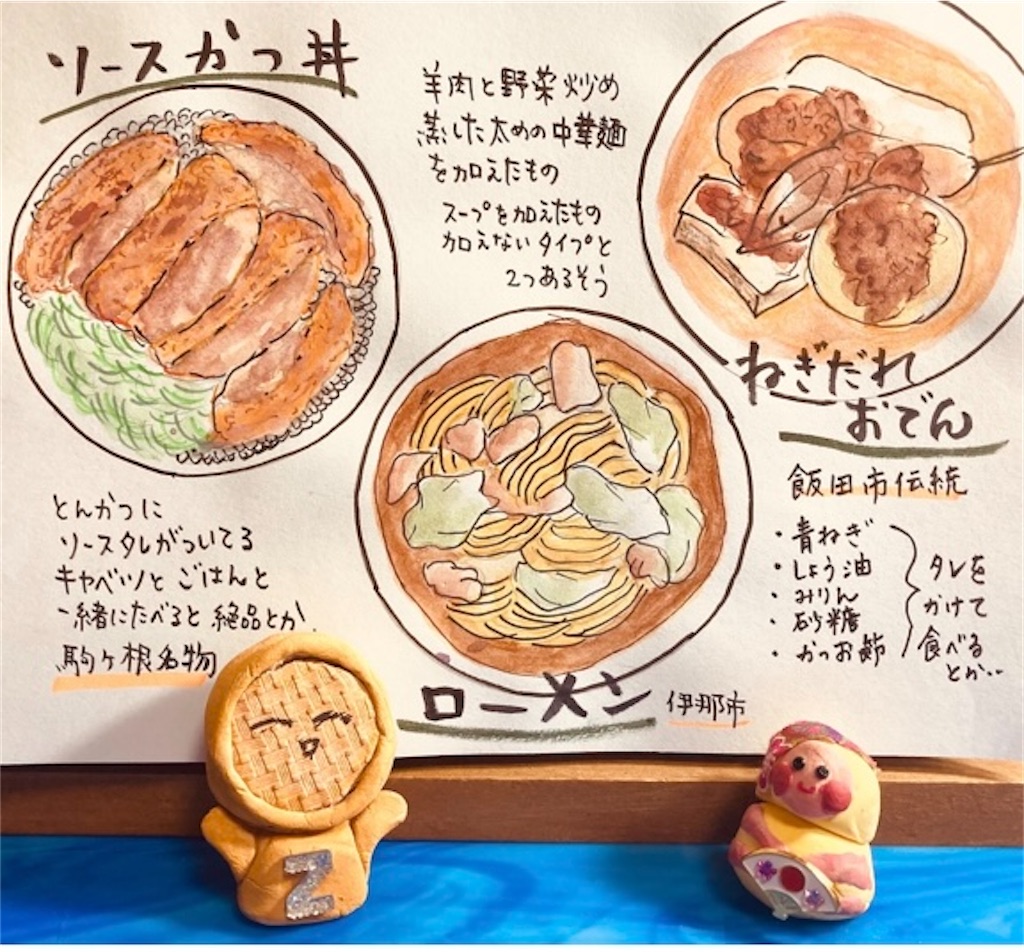 ソースかつ丼
とんかつに
ソースタレがついてる
キャベツと ごはんと
一緒にたべると 絶品とか
駒ヶ根名物
羊肉と野菜炒め
蒸した太めの中華麺
を加えたもの
スープを加えたもの
加えないタイプと
2つあるそう
ローメン 伊那市
ねぎだれ
おでん
飯田市伝統
・青ねぎ
・しょう油
・みりん
・砂糖
・かつお節
タレを
かけて
食べる
とか‥
Z